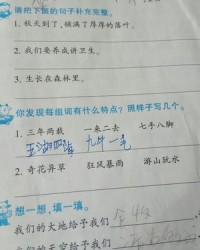 请把下面的句子补充完整。
1. 秋天到了，铺满了厚厚的落叶。
2. 我们要养成讲卫生。
3. 生长在森林里。
你发现每组词有什么特点？照样子写几个。
1. 三年两载 一来二去 七手八脚
五湖四海 九牛一毛
2. 奇花异草 狂风暴雨 游山玩水
想一想，填一填。
我们的大地给予我们
我们的天空给予我们